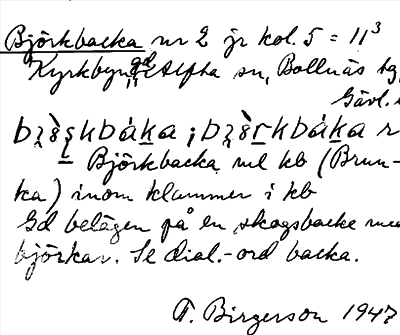 Björkbacka nr 2 jr kol. 5 = 11³
Kyrkbyn, gd i Alfta sn, Bollnäs tg,
Gävl.
Björkbacka ml kb (Brun-
ka) inom klammer i kb
Gd belägen på en skogsbacke med
björkar. Se dial.-ord backa.
T. Birgerson 1947